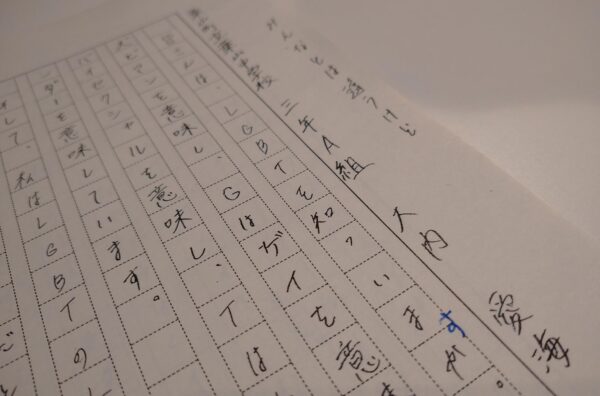 みんなとは違うけど
中学校 三年A組 大内 愛海
は、LGBTを知っいますか。
ビアンを意味し、Gはゲイを意
バイセクシャルを意味し、Tは
ンダーを意味しています。
して、私はLGBTの
ご